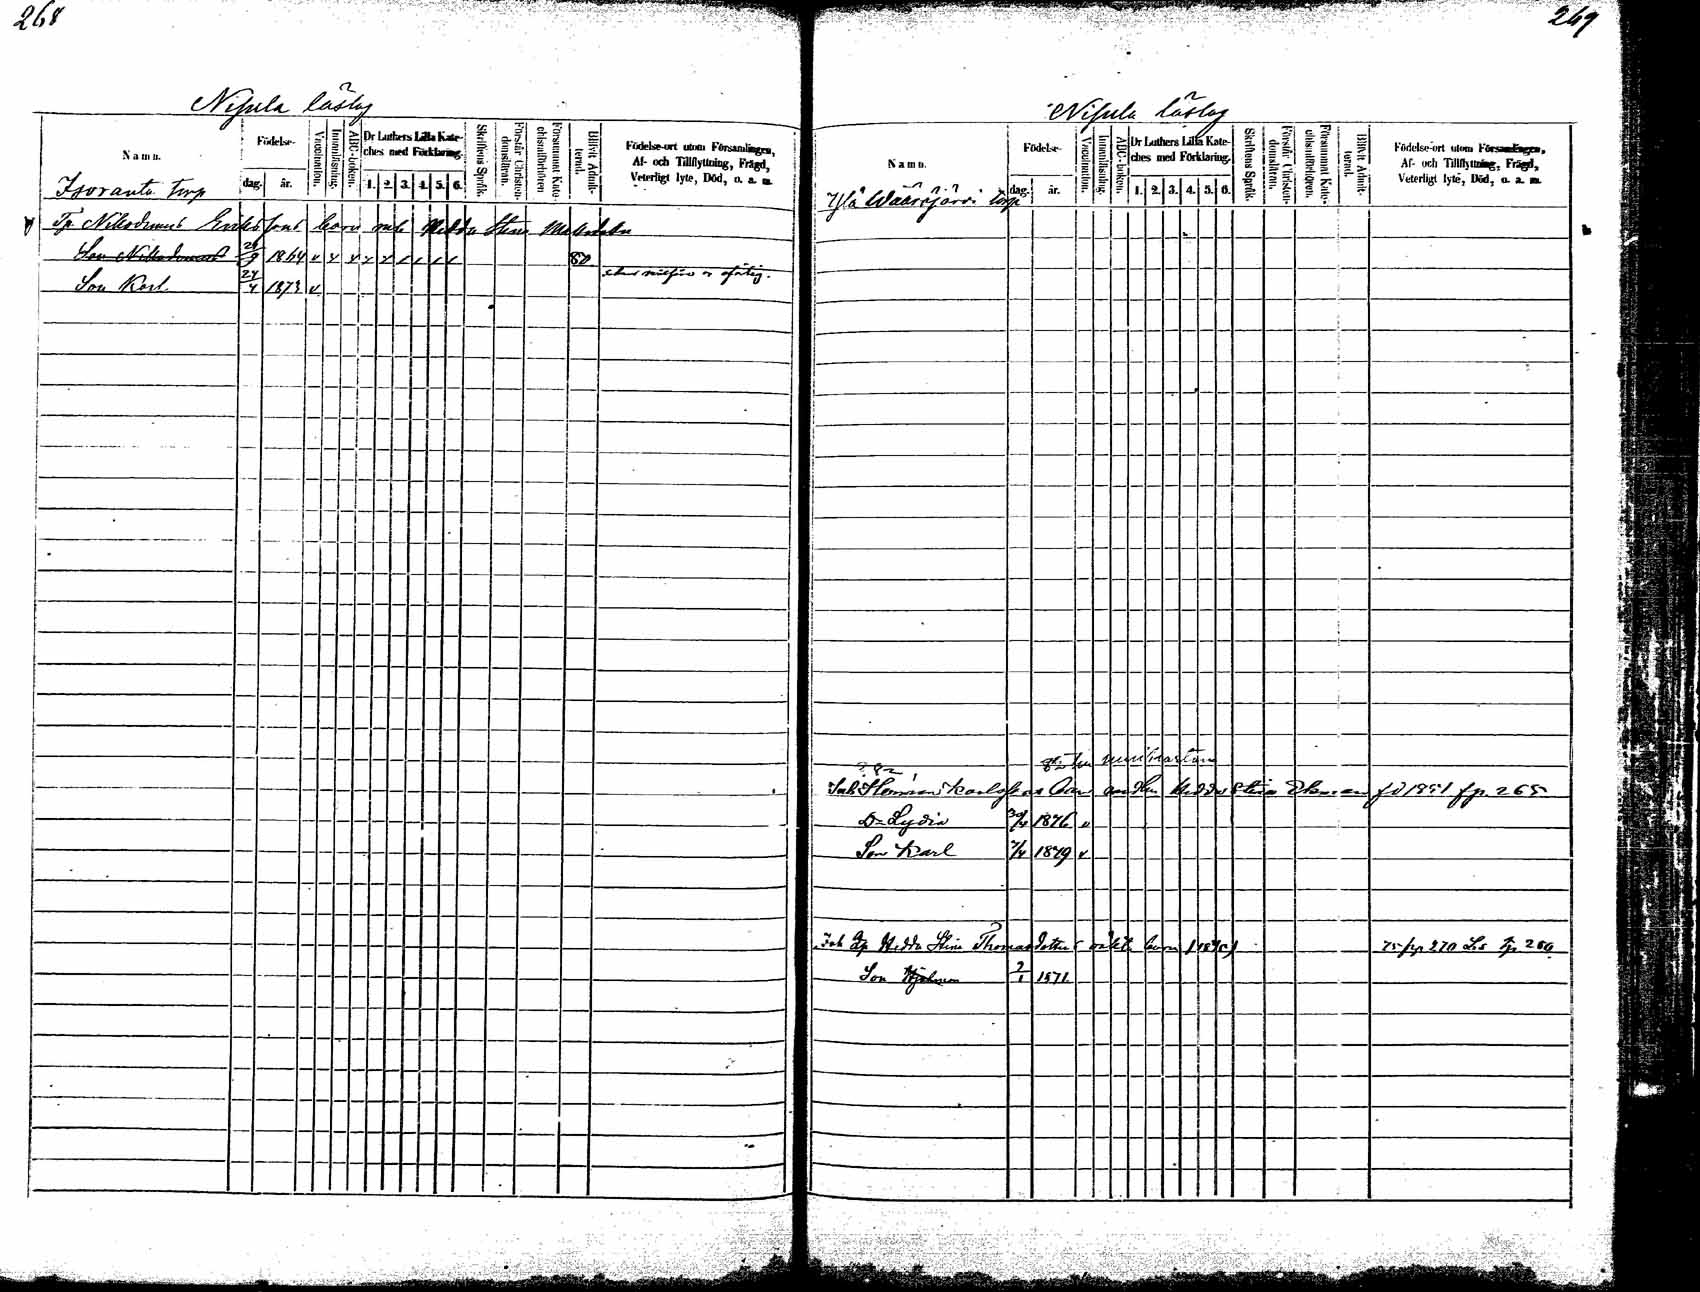 268
Nisula läslag
Namn.
Födelse-
dag.
år.
Vaccination.
Innanläsning.
ABC-boken.
Dr Luthers Lilla Kate-
ches med Förklaring.
1. 2. 3. 4. 5. 6.
Skriftens Språk.
Förstår Christen-
domsläran.
Försummat Kate-
chismiförhören
Blifvit Admit-
terad.
Födelse-ort utom Församlingen,
Af- och Tillflyttning, Frägd,
Veterligt lyte, Död, o. a. m.
Isoranta torp
Tp Nikodemus Eriks sons barn med Hedda Stina
Son Nikodemus 29/9 1864 80
Son Karl 24/4 1873
269
Nisula läslag
Namn.
Födelse-
dag.
år.
Vaccination.
Innanläsning.
ABC-boken.
Dr Luthers Lilla Kate-
ches med Förklaring.
1. 2. 3. 4. 5. 6.
Skriftens Språk.
Förstår Christen-
domsläran.
Försummat Kate-
chismiförhören.
Blifvit Admit-
terad.
Födelse-ort utom Församlingen,
Af- och Tillflyttning, Frägd,
Veterligt lyte, Död, o. a. m.
Ylä Wäärjärvi torp
Inh Karlssons barn Hedda Stina Ekman fd 1851 fp. 265
D= Lydia 30/4 1876
Son Karl 7/4 1879
Inh Hedda Stina Thomasdotters oäkta barn 75 fp 270 Ls Tp 260
Son Hjalmar 7/1 1871